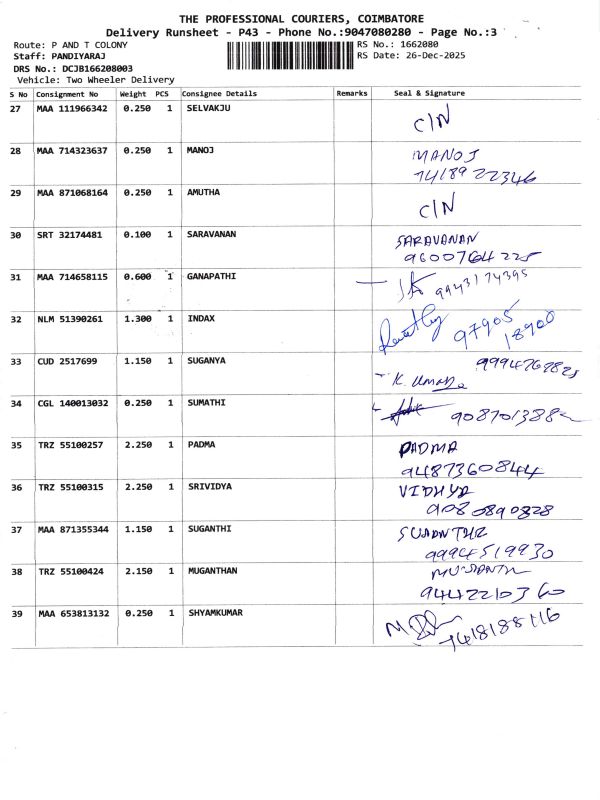 THE PROFESSIONAL COURIERS, COIMBATORE
Delivery Runsheet - P43 - Phone No.:9047080280 - Page No.:3
Route: P AND T COLONY RS No.: 1662080
Staff: PANDIYARAJ RS Date: 26-Dec-2025
DRS No.: DCJB166208003
Vehicle: Two Wheeler Delivery
S No Consignment No Weight PCS Consignee Details Remarks Seal & Signature
27 MAA 111966342 0.250 1 SELVAKJU C/N
28 MAA 714323637 0.250 1 MANOJ MANOJ
7418922346
29 MAA 871068164 0.250 1 AMUTHA C/N
30 SRT 32174481 0.100 1 SARAVANAN SARAVANAN
9600764225
31 MAA 714658115 0.600 1 GANAPATHI 9943174395
32 NLM 51390261 1.300 1 INDAX 97905
18900
33 CUD 2517699 1.150 1 SUGANYA
K. Uma
34 CGL 140013032 0.250 1 SUMATHI
35 TRZ 55100257 2.250 1 PADMA PADMA
9487360844
36 TRZ 55100315 2.250 1 SRIVIDYA VIDHYA
9080890828
37 MAA 871355344 1.150 1 SUGANTHI
9994519930
38 TRZ 55100424 2.150 1 MUGANTHAN
9442210360
39 MAA 653813132 0.250 1 SHYAMKUMAR
7418188116